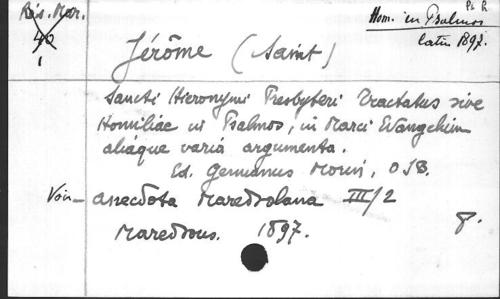 Rés. Mar.
40
1
Pt R
Hom. in Psalmos
latin 1897.
Jérôme (Saint)
Sancti Hieronymi Presbyteri Tractatus sive
Homiliae in Psalmos, in Marci Evangelium
aliaque varia argumenta.
Ed. Germanus Morin, OSB.
Voir - Anecdota Maredsolana III/2
Maredsous. 1897.
8.